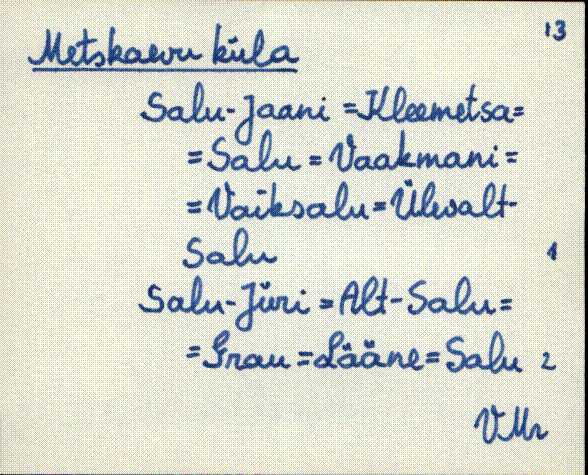 13
Metskaevu küla
Salu-Jaani = Kleemetsa =
= Salu = Vaakmani =
= Vaiksalu = Ülevalt-
Salu 1
Salu-Jüri = Alt-Salu =
= Grau = Lääne = Salu 2
VMr